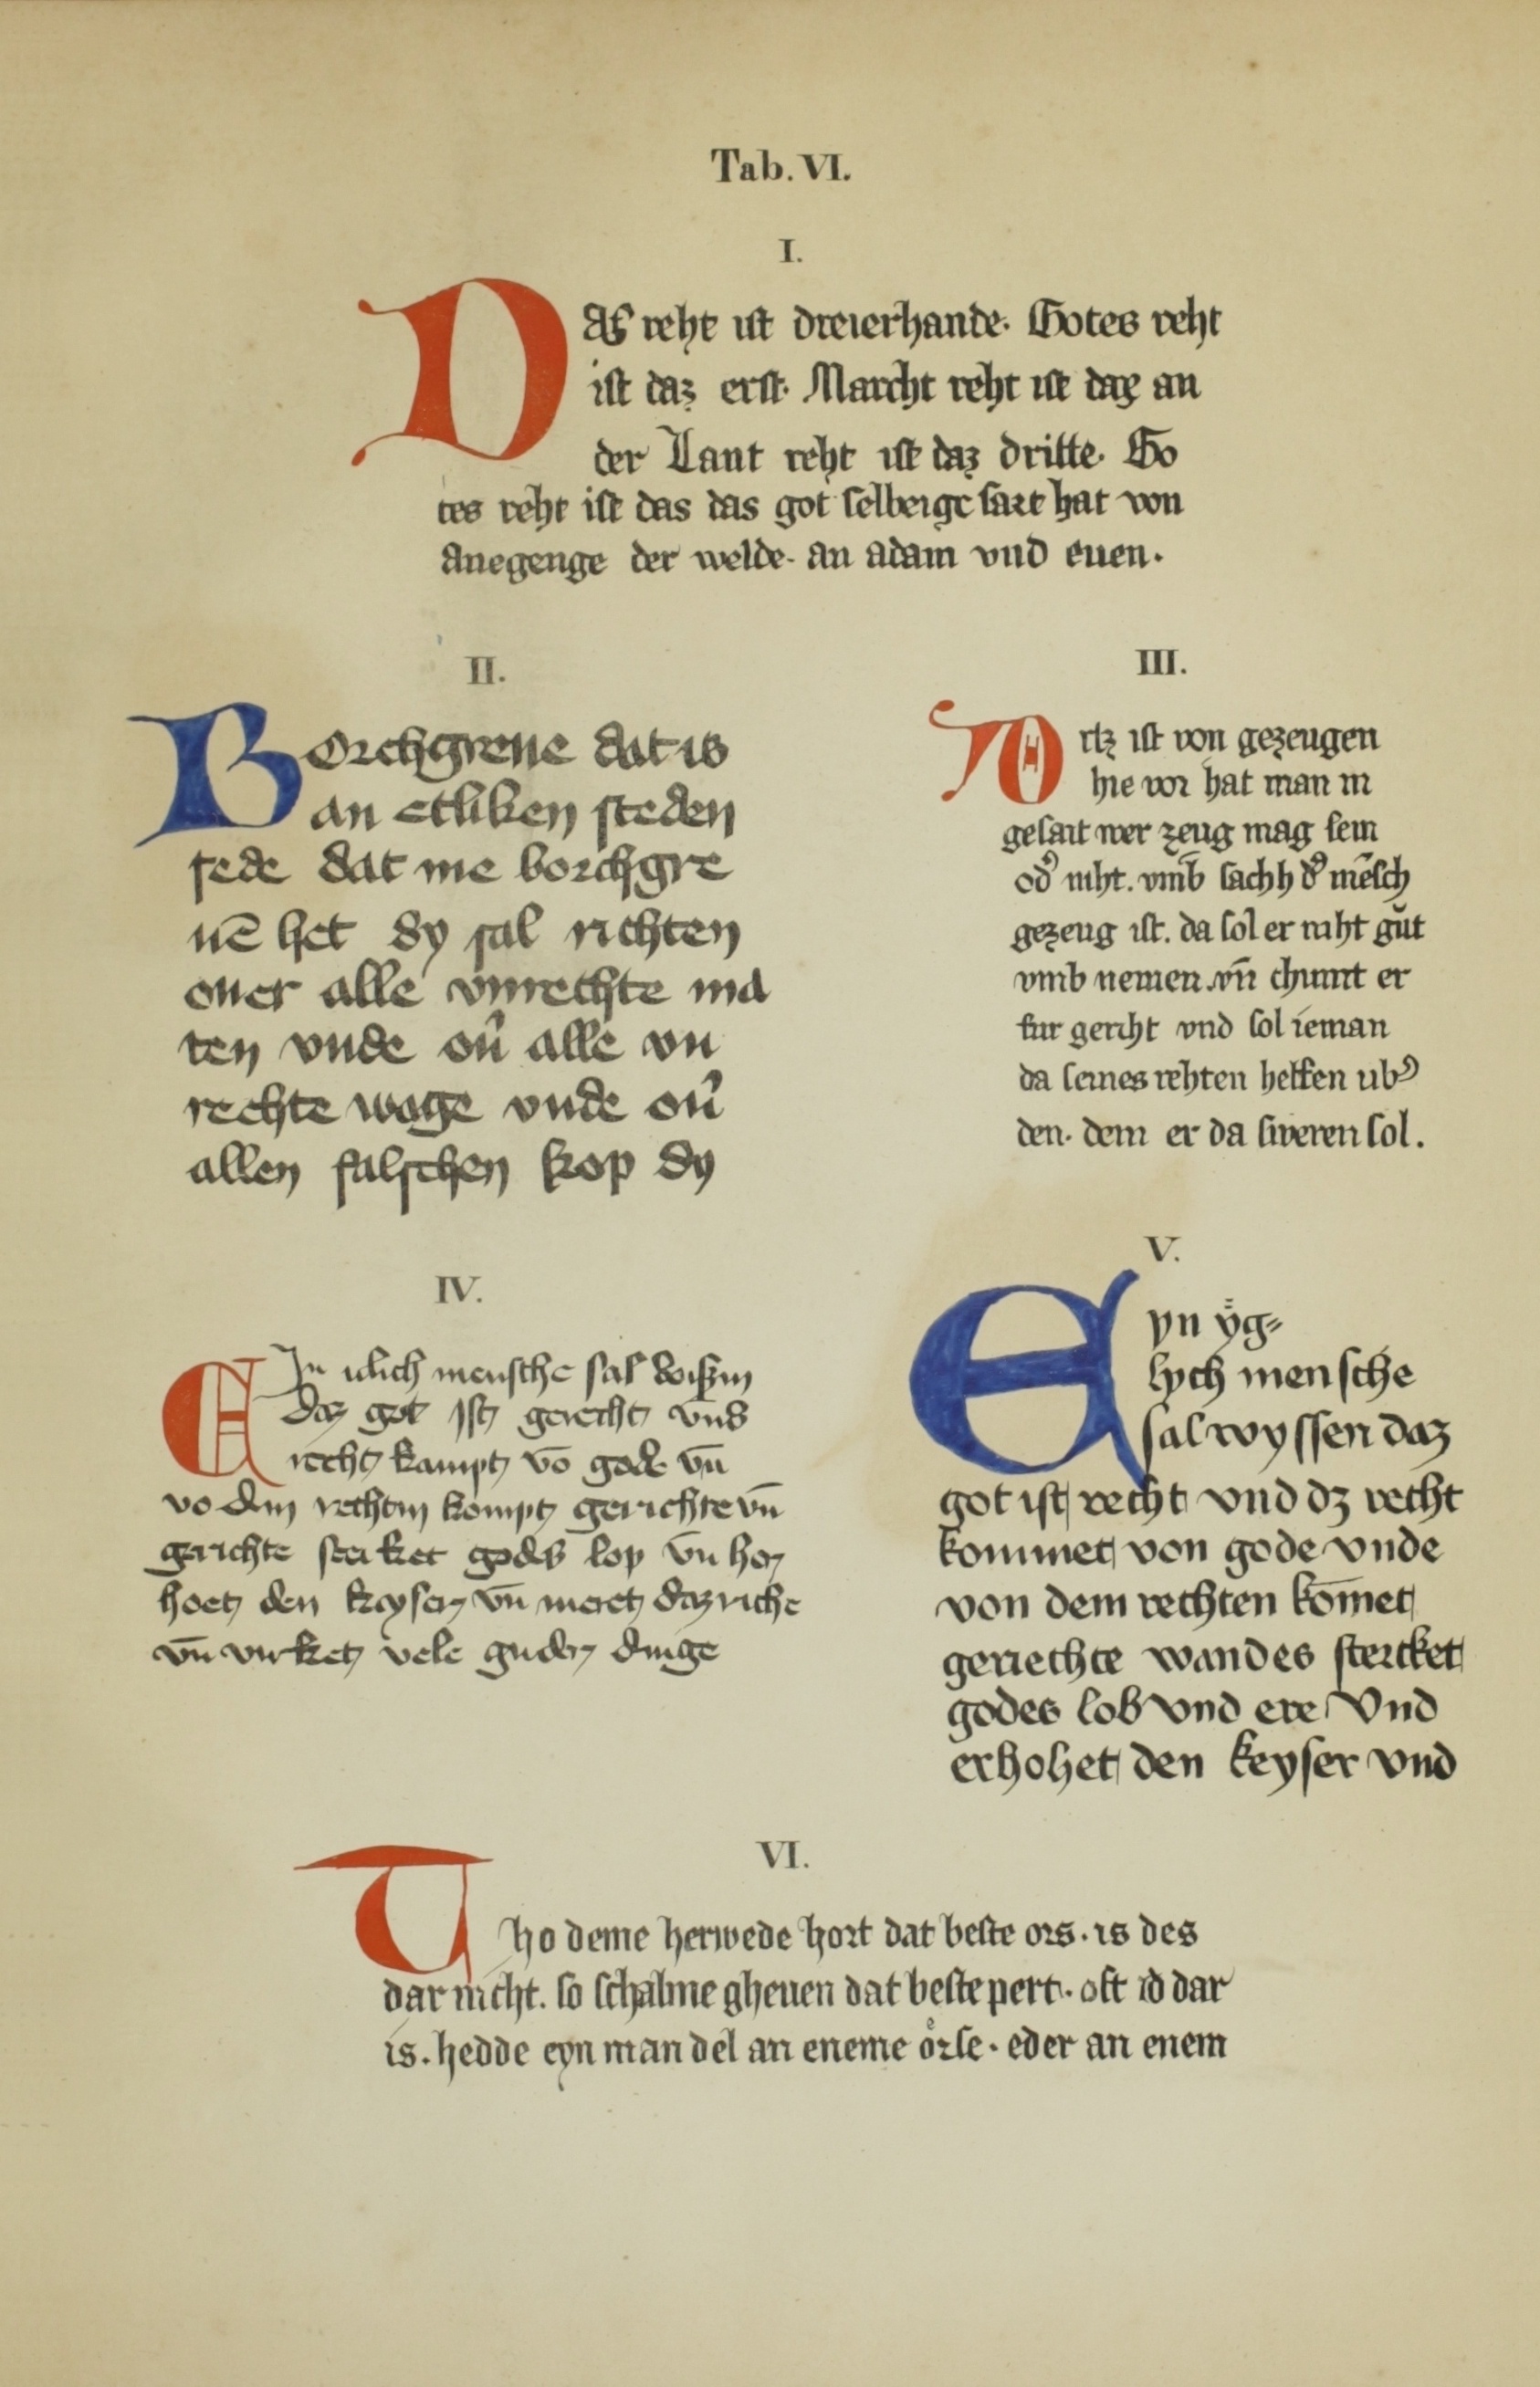 Tab. VI.
I.
Das reht ist dreierhande. Gotes reht
ist daz erst. Marcht reht ist daz an
der Lant reht ist daz dritte. Go
tes reht ist das das got selbe ige sazt hat von
Anegenge der welde. an adam vnd euen.
II.
Borchgreue dat is
an etliken steden
sede dat me borchgre
uē het dy sal richten
ouer alle vnrechte ma
ten vnde ou̕ alle vn
rechte wage vnde ou̕
allen falschen kop dy
III.
rtz ist von gezeugen
hie vor hat man in
gesait wer zeug mag sein
od̕ niht. vmb sach h d̕ mēsch
gezeug ist. da sol er niht gůt
vmb nemen. vn̄ chumt er
fur geriht vnd sol ieman
da seines rehten helfen ub̕
den. dem er da sweren sol.
IV.
EIn iclich mensche sal wiszin
daz got ist gerecht vnd
recht kompt vō gode vn̄
vo dem rechtin kompt gerichte vn̄
gerichte sterket godes lop vn̄ her
hoet den keyser vn̄ meret daz riche
vn̄ virket vele guder dinge
V.
Eyn yg⸗
lych mensche
sal wyssen daz
got ist recht vnd dz recht
kommet von gode vnde
von dem rechten kōmet
geriechte wandes stercket
godes lob vnd ere Vnd
erhohet den keyser vnd
VI.
Tho deme herwede hort dat beste ors. is des
dar nicht. so schalme gheuen dat beste pert. oft id dar
is. hedde eyn man del an eneme oͤrse. eder an enem